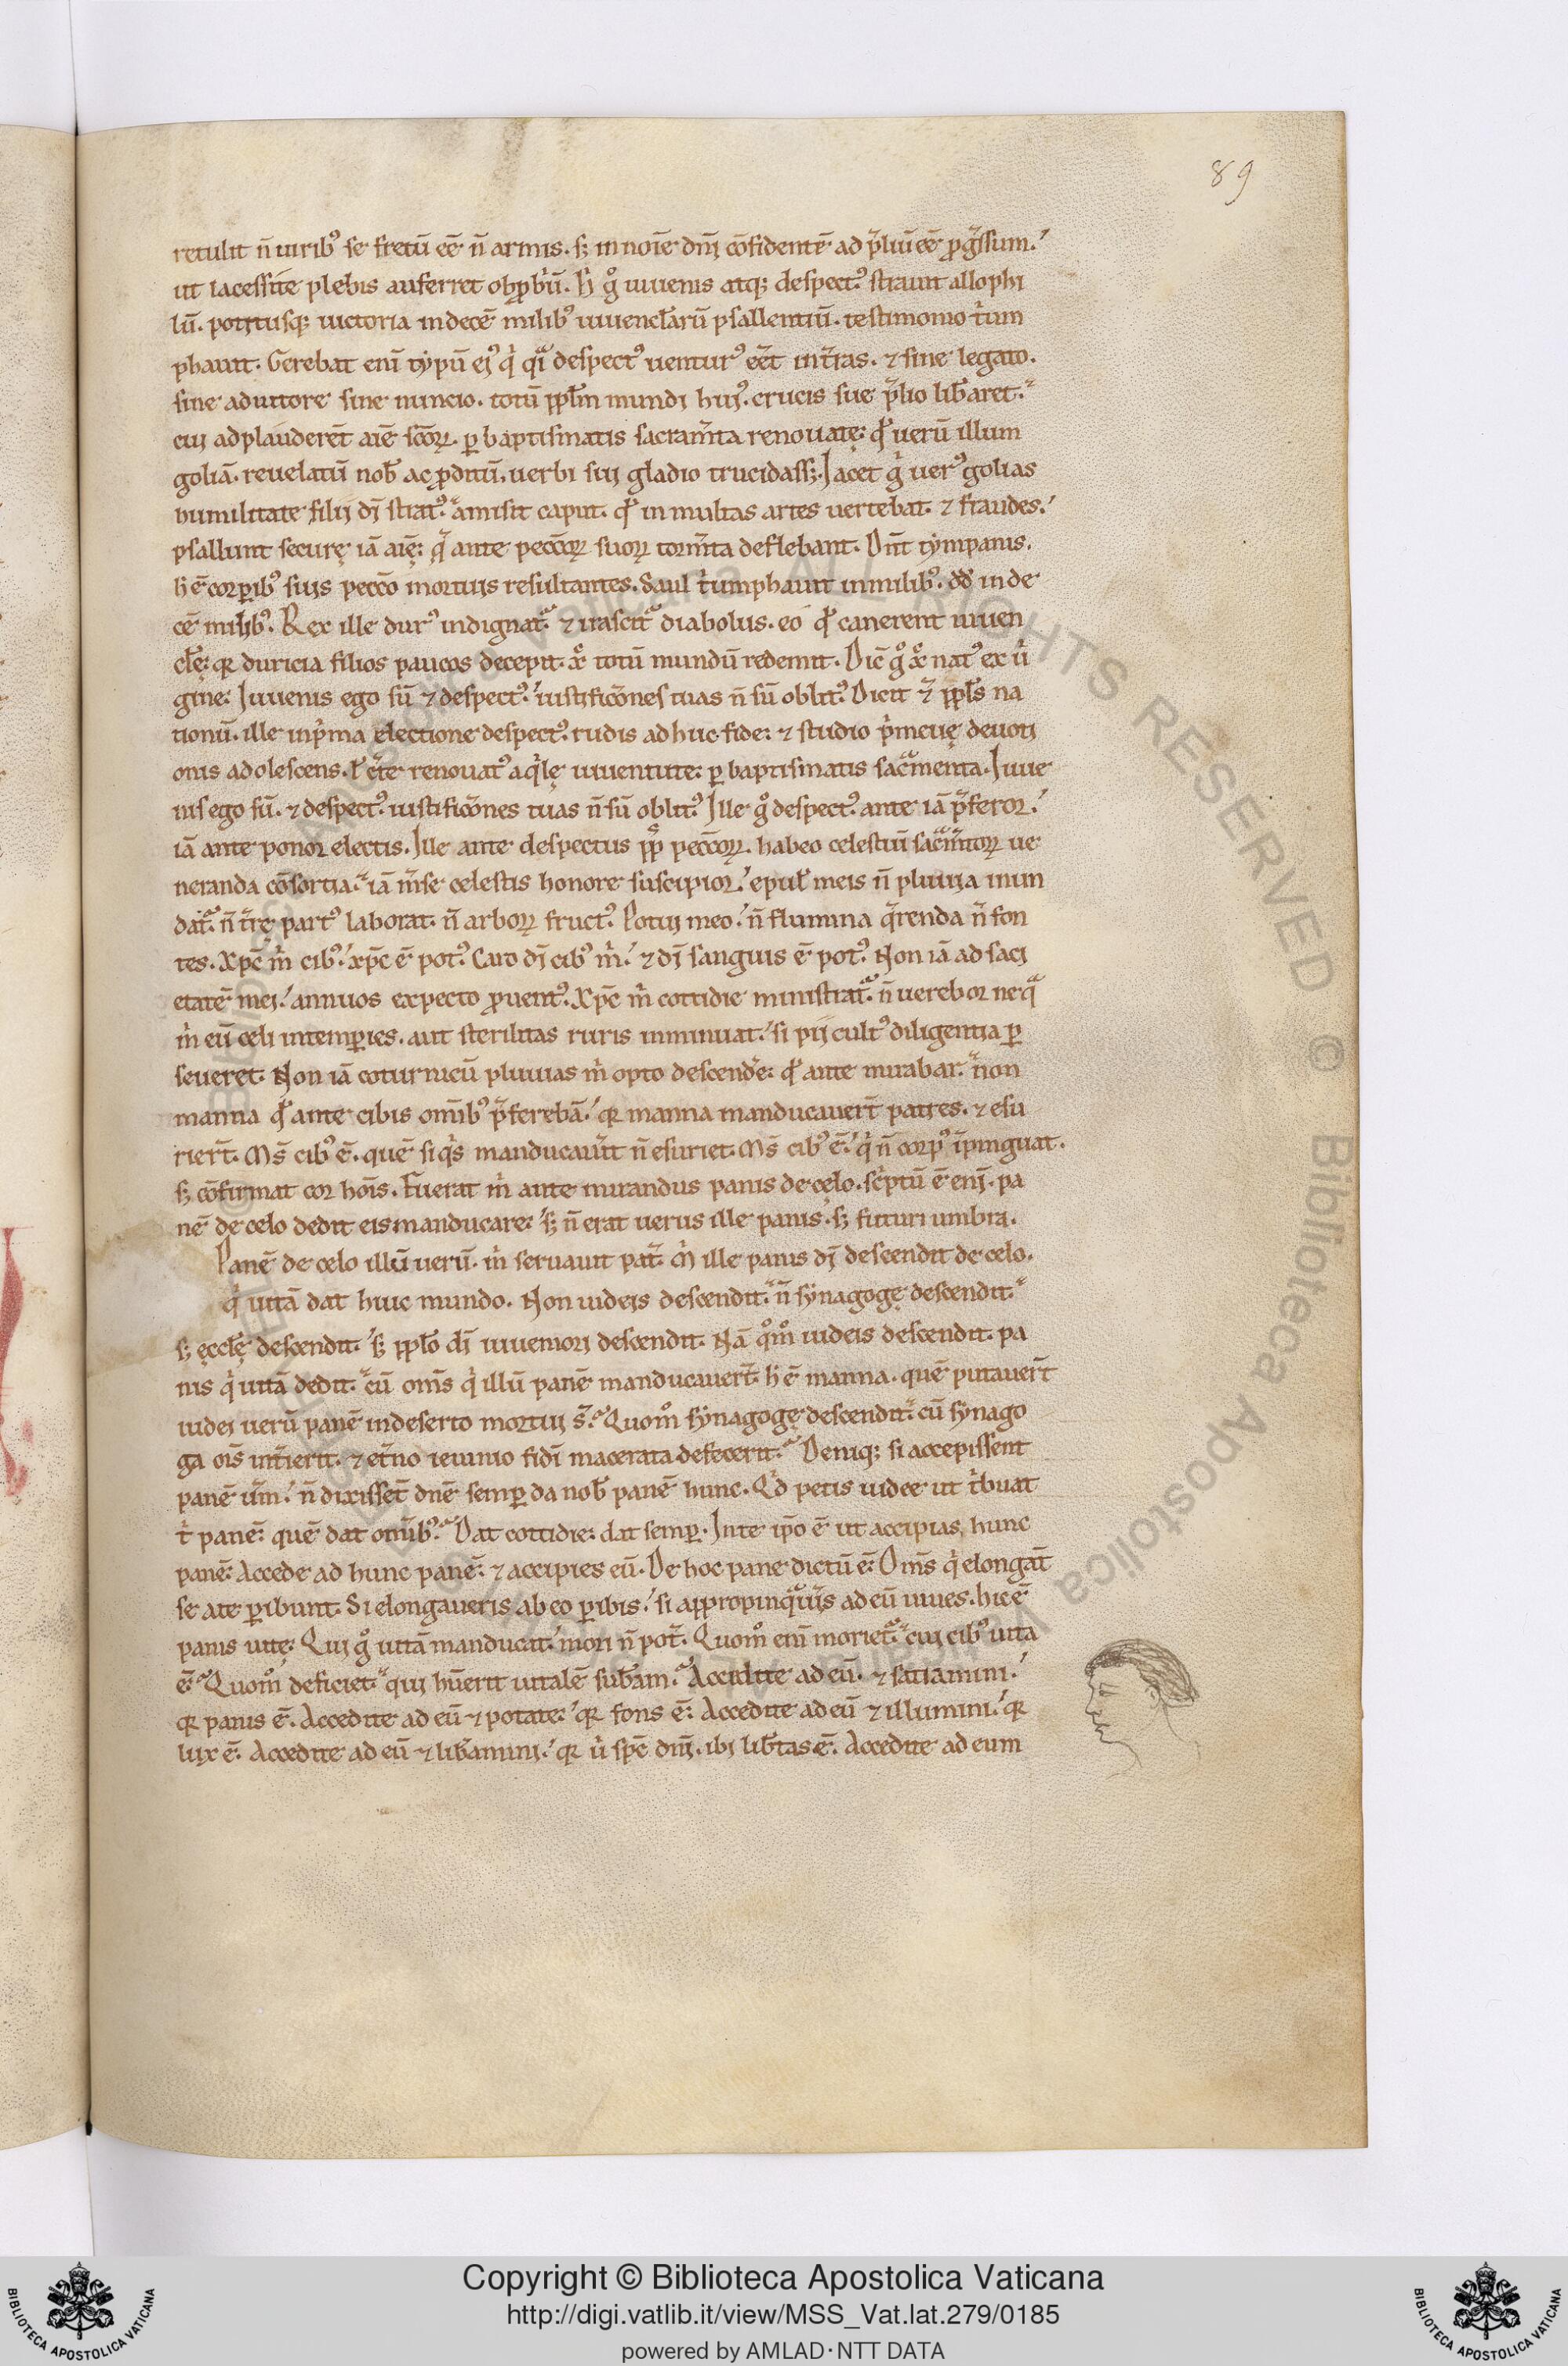 89
retulit n̄ uirib᾿ se fretū eē n̄ armis. s; in noīe dnī cōfidentē ad p̄liū eē ꝓgssum.
ut lacessite plebis auferret obꝓbriū. h g° iuuenis atq; despect᾿ strauit allophi
lū. potitusq; uictoria in decē milib᾿ iuuencl̄arū psallentiū. testimonio t̾um
phauit. Gerebat eni typū ei᾿ qi qa despect᾿ uentur᾿ eēt in tr̄as. ⁊ sine legato.
sine adiutore sine nuncio. totū ppl̄m mundi hui᾿. crucis sue p̄lio lib̄aret.
cui adplauderēt aīe sc̄oꝝ. ꝑ baptismatis sacram̄ta renouatę: qd uerū illum
goliā. reuelatū nob̄ ac ꝓditū, uerbi sui gladio trucidass;. Iacet g uer᾿ golias
humilitate filii dī strat᾿. amisit caput. qd in multas artes uertebat. ⁊ fraudes.
psallunt securę iā aīę: q̄ ante pecc̄oꝝ suoꝝ torm̄ta deflebant. Dn̄t tympanis.
h ē corporib᾿ suis pecc̄o mortuis resultantes. Saul t̾umphauit in milib᾿. dd̄ in de
cē milib᾿. Rex ille dur᾿ indignat̄. ⁊ irascit̄ diabolus. eo qd canerent iuuen
cl̄ę: qꝛ duricia filios paucos decepit. x̄ totū mundū redemit. Dic̄ g° x̄ nat᾿ ex ui
gine: Iuuenis ego sū ⁊ despect᾿. iustificc̄ones tuas n̄ sū oblit᾿. Dicit ⁊ ppl̄s na
tionū. ille in p̾ma electione despect᾿. rudis ad huc fide: ⁊ studio p̾meuę deuoti
onis adolescens. l̄ c̄te renouat᾿ aq̾lę iuuentute: ꝑ baptismatis sac̄menta. Iuue
nis ego sū. ⁊ despect᾿. iustificc̄ones tuas n̄ sū oblit᾿. Ille g° despect᾿ ante iā p̄feror.
iā ante ponor electis. Ille ante despectus pp̄ pecc̄oꝝ. habeo celestiū sac̄m̄toꝝ ue
neranda cōsortia. iā m̄se celestis honore suscipior. epul̄ meis n̄ pluuia inun
dat̄. n̄ tr̄ę part᾿ laborat. n̄ arboꝝ fruct᾿. Potui meo. n̄ flumina q̄renda n̄ fon
tes. Xp̄c m̾ cib᾿. xp̄c ē pot᾿. Caro dī cib᾿ m̾. ⁊ dī sanguis ē pot᾿. Non iā ad saci
etatē mei. annuos expecto ꝓuent᾿. Xp̄c m̾ cottidie ministrat̄. n̄ uerebor neqa
m̾ eū celi intemꝑies. aut sterilitas ruris inminuat. si pii cult᾿ diligentia ꝑ
seueret. Non iā coturnicū pluuias m̾ opto descende̾: qd ante mirabar. non
manna qd ante cibis omīb᾿ p̄ferebā. qꝛ manna manducauer̄t patres. ⁊ esu
rier̄t. M̄s cib᾿ ē. quē si q̾s manducau̾it n̄ esuriet. M̄s cib᾿ ē. q̾ n̄ corp᾿ īpinguat.
s; cōfirmat cor hoīs. Fuerat m̾ ante mirandus panis de cęlo. sc̾ptū ē eni. pa
nē de celo dedit eis manducare: s; n̄ erat uerus ille panis. s; futuri umbra.
Panē de celo illū uerū. m̾ seruauit pat̾. M̾ ille panis dī descendit de celo.
q̾ uitā dat huic mundo. Non iudeis descendit. n̄ synagogę descendit.
s; ęccl̄ę descendit. s; ppl̄o dī iuueniori descendit. Nā qm̊ iudeis descendit. pa
nis q̾ uitā dedit. cū om̄s q̾ illū panē manducauer̄t. h ē manna. quē putauer̄t
iudei uerū panē in deserto mortui s̄. Quom̊ synagogę descendit. cū synago
ga oīs int̾ierit. ⁊ et̾no ieiunio fidī macerata defecerit. Deniq; si accepissent
panē uīm. n̄ dixisset̄ dn̄e semꝑ da nob̄ panē hunc. Qd petis iudee ut t̾buat
t̾ panē: quē dat omīb᾿. Dat cottidie: dat semꝑ. In te ip̄o ē ut accipias hunc
panē: Accede ad hunc panē: ⁊ accipies eū. De hoc pane dictū ē: Om̄s q̾ elongāt
se a te ꝑibunt. Si elongaueris ab eo ꝑibis. si appropinqu̾is ad eū uiues. hic ē
panis uitę: Qui g° uitā manducat. mori n̄ pot̾. Quom̊ eni morietr̄. cui cib᾿ uita
ē. Quom̊ deficiet. qui hūerit uitalē sub̄am. Accedite ad eū. ⁊ satiamini.
qꝛ panis ē. Accedite ad eū ⁊ potate: qꝛ fons ē: Accedite ad eū ⁊ illumini. qꝛ
lux ē. Accedite ad eū ⁊ lib̄amini. qꝛ u̾ sp̄c dnī. ibi lib̄tas ē. Accedite ad eum
Copyright © Biblioteca Apostolica Vaticana
http://digi.vatlib.it/view/MSS_Vat.lat.279/0185
powered by AMLAD·NTT DATA
BIBLIOTECA APOSTOLICA VATICANA
BIBLIOTECA APOSTOLICA VATICANA